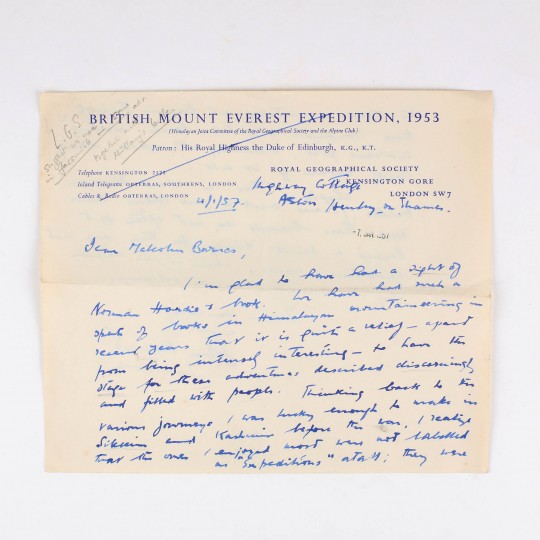 L.G.S.
BRITISH MOUNT EVEREST EXPEDITION, 1953
(Himalayan Joint Committee of the Royal Geographical Society and the Alpine Club)
Patron: His Royal Highness the Duke of Edinburgh, K.G., K.T.
Telephone KENSINGTON
ROYAL GEOGRAPHICAL SOCIETY
Inland Telegrams OBTERRAS, SOUTHKENS, LONDON
KENSINGTON GORE
Cables & Radio OBTERRAS, LONDON
LONDON SW7
Highway Cottage
4/1/57.
Aston Henley-on-Thames.
Dear Malcolm Barnes,
I'm glad to have had a sight of
Norman Hardie's book. We have had such a
spate of books on Himalayan mountaineering in
recent years that it is quite a relief – apart
from being intensely interesting – to have the
stage for these adventures described discerningly
and filled with people. Thinking back to the
various journeys I was lucky enough to make in
Sikkim and Kashmir before the war, I realize
that the ones I enjoyed most were not labelled
as "Expeditions" at all; they were